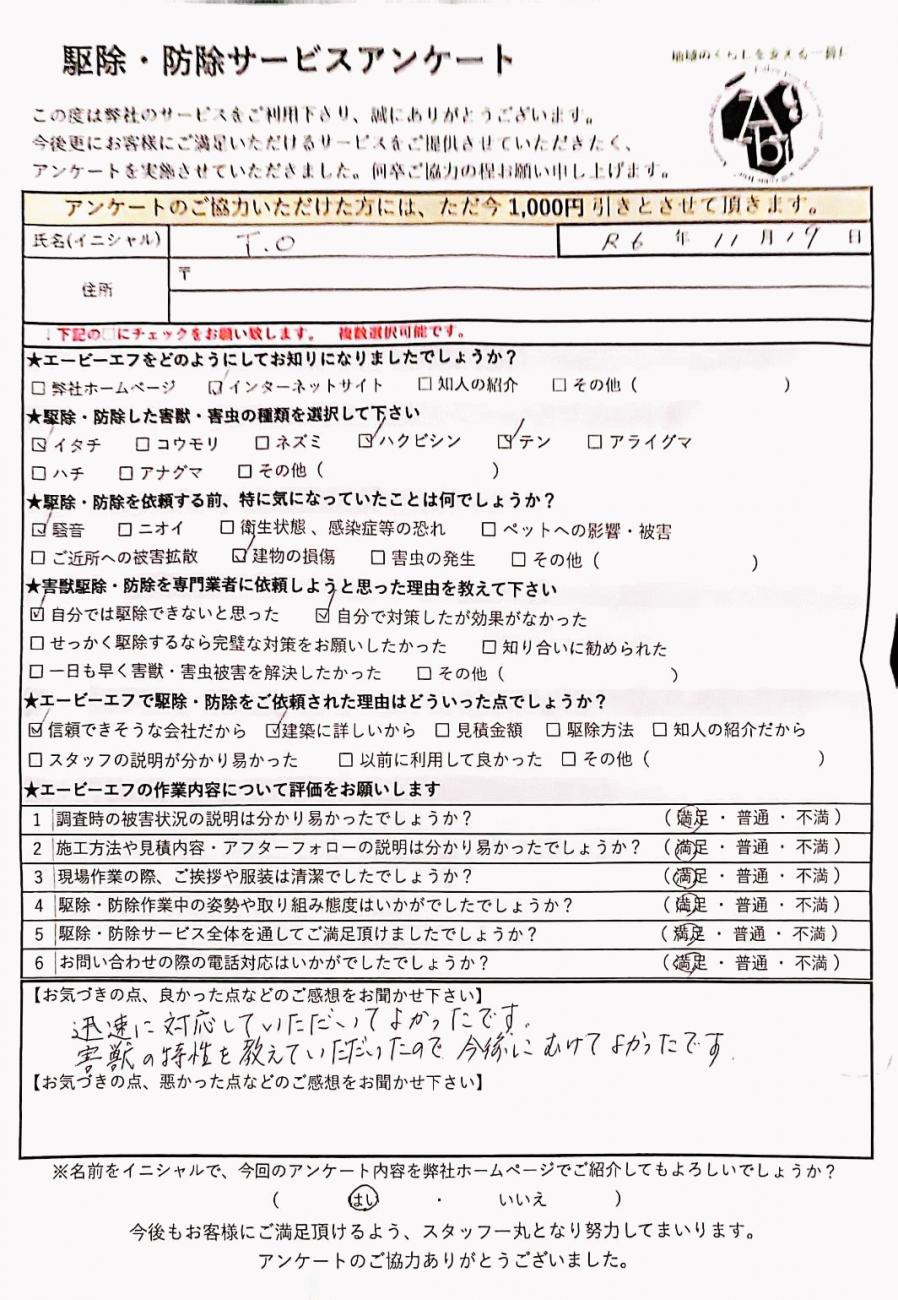 駆除・防除サービスアンケート
地球のくらしを支える一員に
この度は弊社のサービスをご利用下さり、誠にありがとうございます。
今後更にお客様にご満足いただけるサービスをご提供させていただきたく、
アンケートを実施させていただきました。何卒ご協力の程お願い申し上げます。
アンケートのご協力いただけた方には、ただ今 1,000円 引きとさせて頂きます。
氏名(イニシャル) T.O R6 年 11 月 19 日
住所 〒
↓下記の□にチェックをお願い致します。 複数選択可能です。
★エービーエフをどのようにしてお知りになりましたでしょうか?
□ 弊社ホームページ ☑ インターネットサイト □ 知人の紹介 □ その他 ( )
★駆除・防除した害獣・害虫の種類を選択して下さい
☑ イタチ □ コウモリ □ ネズミ ☑ ハクビシン ☑ テン □ アライグマ
□ ハチ □ アナグマ □ その他 ( )
★駆除・防除を依頼する前、特に気になっていたことは何でしょうか?
☑ 騒音 □ ニオイ □ 衛生状態、感染症等の恐れ □ ペットへの影響・被害
□ ご近所への被害拡散 ☑ 建物の損傷 □ 害虫の発生 □ その他 ( )
★害獣駆除・防除を専門業者に依頼しようと思った理由を教えて下さい
☑ 自分では駆除できないと思った ☑ 自分で対策したが効果がなかった
□ せっかく駆除するなら完璧な対策をお願いしたかった □ 知り合いに勧められた
□ 一日も早く害獣・害虫被害を解決したかった □ その他 ( )
★エービーエフで駆除・防除をご依頼された理由はどういった点でしょうか?
☑ 信頼できそうな会社だから ☑ 建築に詳しいから □ 見積金額 □ 駆除方法 □ 知人の紹介だから
□ スタッフの説明が分かり易かった □ 以前に利用して良かった □ その他 ( )
★エービーエフの作業内容について評価をお願いします
1 調査時の被害状況の説明は分かり易かったでしょうか? ( 満足 ・ 普通 ・ 不満 )
2 施工方法や見積内容・アフターフォローの説明は分かり易かったでしょうか? ( 満足 ・ 普通 ・ 不満 )
3 現場作業の際、ご挨拶や服装は清潔でしたでしょうか? ( 満足 ・ 普通 ・ 不満 )
4 駆除・防除作業中の姿勢や取り組み態度はいかがでしたでしょうか? ( 満足 ・ 普通 ・ 不満 )
5 駆除・防除サービス全体を通してご満足頂けましたでしょうか? ( 満足 ・ 普通 ・ 不満 )
6 お問い合わせの際の電話対応はいかがでしたでしょうか? ( 満足 ・ 普通 ・ 不満 )
【お気づきの点、良かった点などのご感想をお聞かせ下さい】
迅速に対応していただいてよかったです。
害獣の特性を教えていただいたので、今後にむけてよかったです。
【お気づきの点、悪かった点などのご感想をお聞かせ下さい】
※名前をイニシャルで、今回のアンケート内容を弊社ホームページでご紹介してもよろしいでしょうか?
( はい ・ いいえ )
今後もお客様にご満足頂けるよう、スタッフ一丸となり努力してまいります。
アンケートのご協力ありがとうございました。